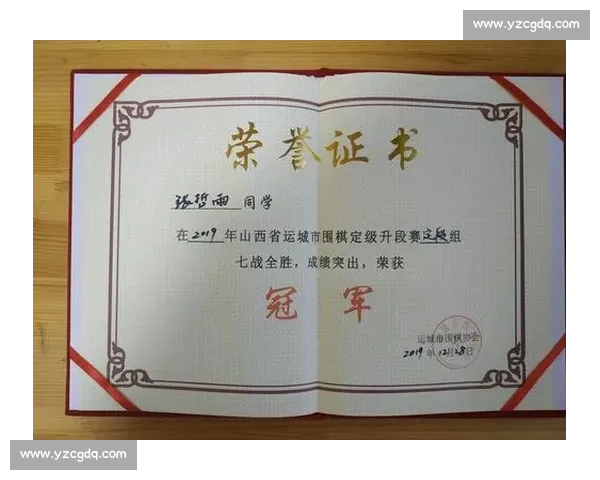 www.yzcgdq.com
荣誉证书
张哲雨 同学
在2019年山西省运城市围棋定级升段赛定段组
七战全胜，成绩突出，荣获
冠 军
运城市围棋协会
2019年12月28日
www.yzcgdq.com